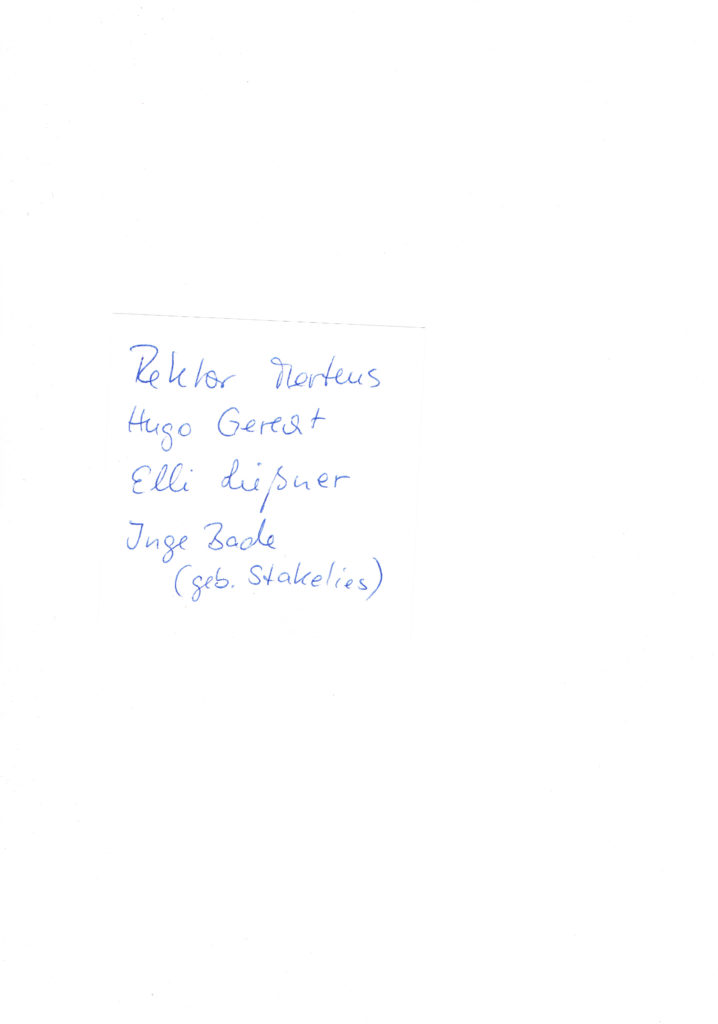 Rektor Mertens
Hugo Gerecht
Elli Ließner
Inge Bade
(geb. Stakelies)